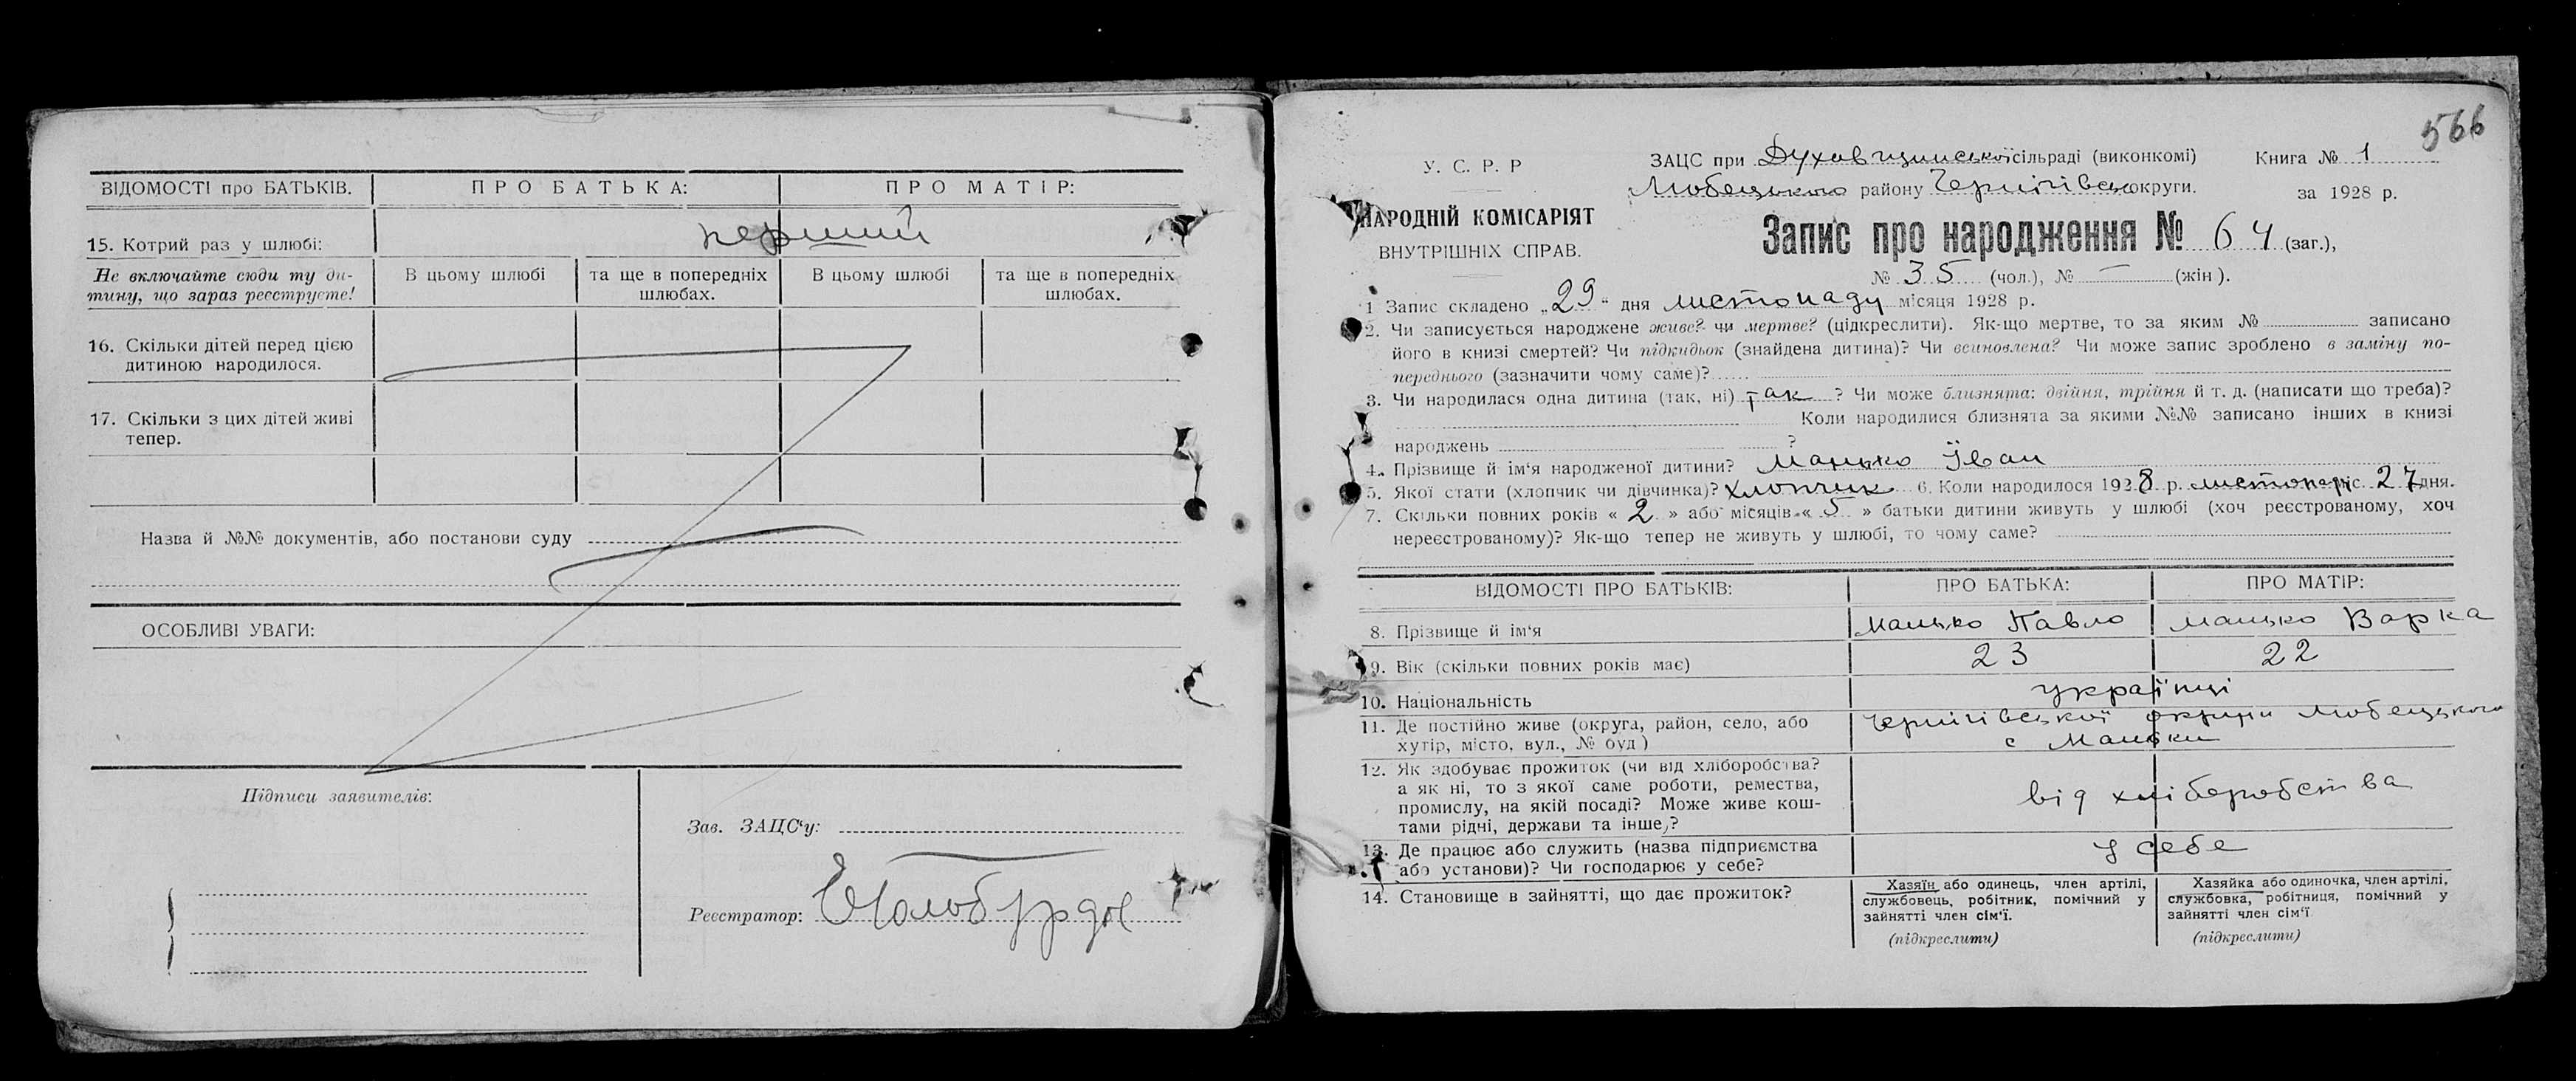 ВІДОМОСТІ про БАТЬКІВ. ПРО БАТЬКА: ПРО МАТІР:
15. Котрий раз у шлюбі: перший
Не включайте сюди ту ди-
тину, що зараз реєструєте!
В цьому шлюбі
та ще в попередніх
шлюбах.
В цьому шлюбі
та ще в попередніх
шлюбах.
16. Скільки дітей перед цією
дитиною народилося.
17. Скільки з цих дітей живі
тепер.
Назва й №№ документів, або постанови суду
ОСОБЛИВІ УВАГИ:
Підписи заявителів:
Зав. ЗАЦС‘у:
Реєстратор:
566
У. С. Р. Р
НАРОДНІЙ КОМІСАРІЯТ
ВНУТРІШНІХ СПРАВ.
ЗАЦС при Духовщинської сільраді (виконкомі)
Любецького району Чернігівсь округи.
Книга № 1
за 1928 р.
Запис про народження № 64 (заг.),
№ 35 (чол.), № — (жін).
1 Запис складено „29“ дня листопаду місяця 1928 р.
2. Чи записується народжене живе? чи мертве? (цідкреслити). Як-що мертве, то за яким № записано
його в книзі смертей? Чи підкидьок (знайдена дитина)? Чи всиновлена? Чи може запис зроблено в заміну по-
переднього (зазначити чому саме)?
3. Чи народилася одна дитина (так, ні) так ? Чи може близнята: двійня, трійня й т. д. (написати що треба)?
Коли народилися близнята за якими №№ записано інших в книзі
народжень ?
4. Прізвище й ім‘я народженої дитини? Манько Іван
5. Якої стати (хлопчик чи дівчинка)? хлопчик 6. Коли народилося 1928 р. листопаду міс 27 дня.
7. Скільки повних років « 2 » або місяців « 5 » батьки дитини живуть у шлюбі (хоч реєстрованому, хоч
нереєстрованому)? Як-що тепер не живуть у шлюбі, то чому саме?
ВІДОМОСТІ ПРО БАТЬКІВ: ПРО БАТЬКА: ПРО МАТІР:
8. Прізвище й ім‘я Манько Павло Манько Варка
9. Вік (скільки повних років має) 23 22
10. Національність українці
11. Де постійно живе (округа, район, село, або
хутір, місто, вул., № буд)
Чернігівської округи Любецького
с Маньки
12. Як здобуває прожиток (чи від хліборобства?
а як ні, то з якої саме роботи, ремества,
промислу, на якій посаді? Може живе кош-
тами рідні, держави та інше)?
від хліборобства
13. Де працює або служить (назва підприємства
або установи)? Чи господарює у себе?
у себе
14. Становище в зайнятті, що дає прожиток?
Хазяїн або одинець, член артілі,
службовець, робітник, помічний у
зайнятті член сім‘ї.
(підкреслити)
Хазяйка або одиночка, член артілі,
службовка, робітниця, помічний у
зайнятті член сім‘ї
(підкреслити)